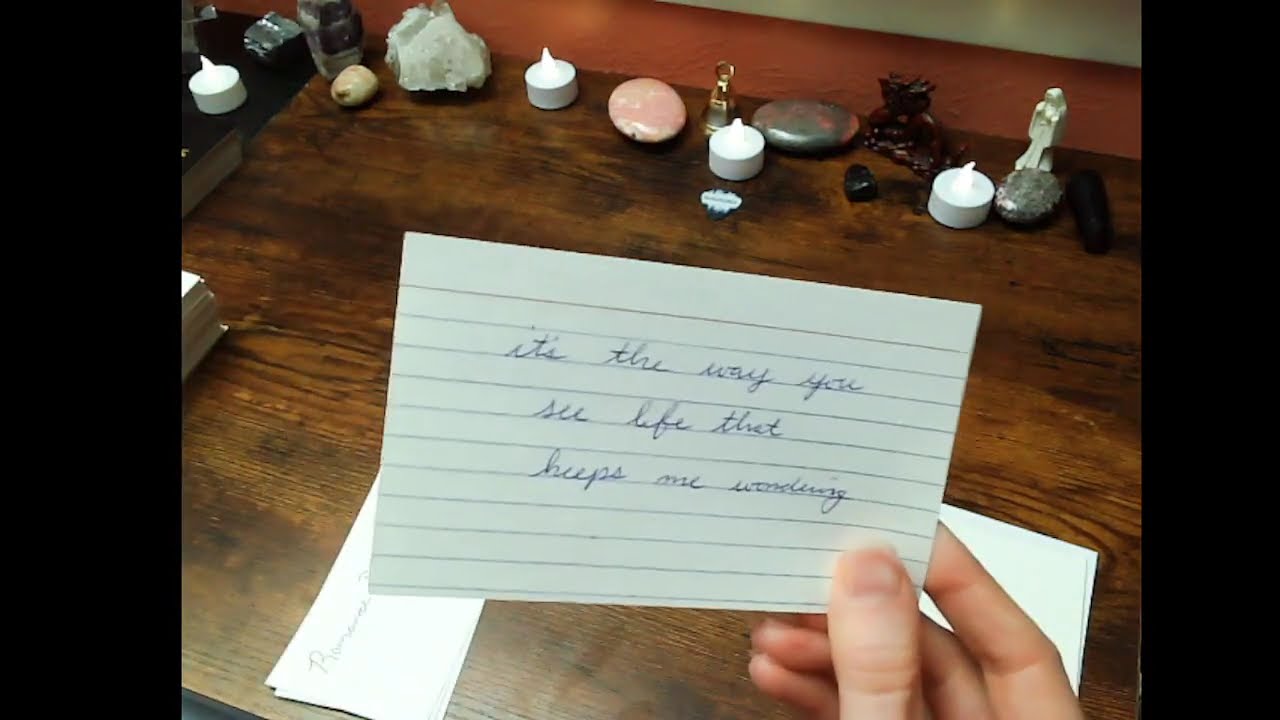 it's the way you
see life that
keeps me wondering
Romance